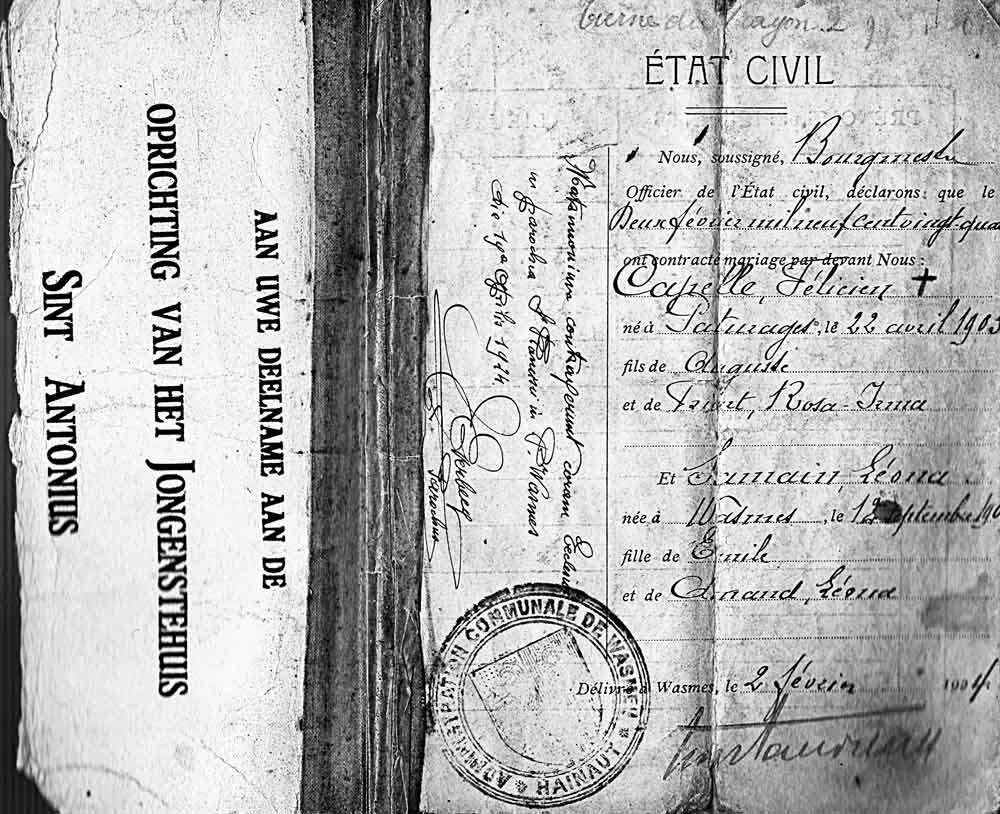 AAN UWE DEELNAME AAN DE
OPRICHTING VAN HET JONGENSTEHUIS
SINT ANTONIUS
ÉTAT CIVIL
Nous, soussigné, Bourgmestre
Officier de l'État civil, déclarons que le
Deux février mil neuf cent vingt-qua
ont contracté mariage par devant Nous :
Capelle, Félicien +
né à Paturages, le 22 avril 190
fils de Auguste
et de Rosa Irma
Et Samain, Léona
née à Wasmes, le 12 septembre 190
fille de Emile
et de Amand, Léona
Délivré à Wasmes, le 2 février 190 4
Matrimonium contraxerunt coram
in parochia St in P. Wasmes
die 19a Aprilis 1924
Parochus
ADMINISTRATION COMMUNALE DE WASMES
HAINAUT